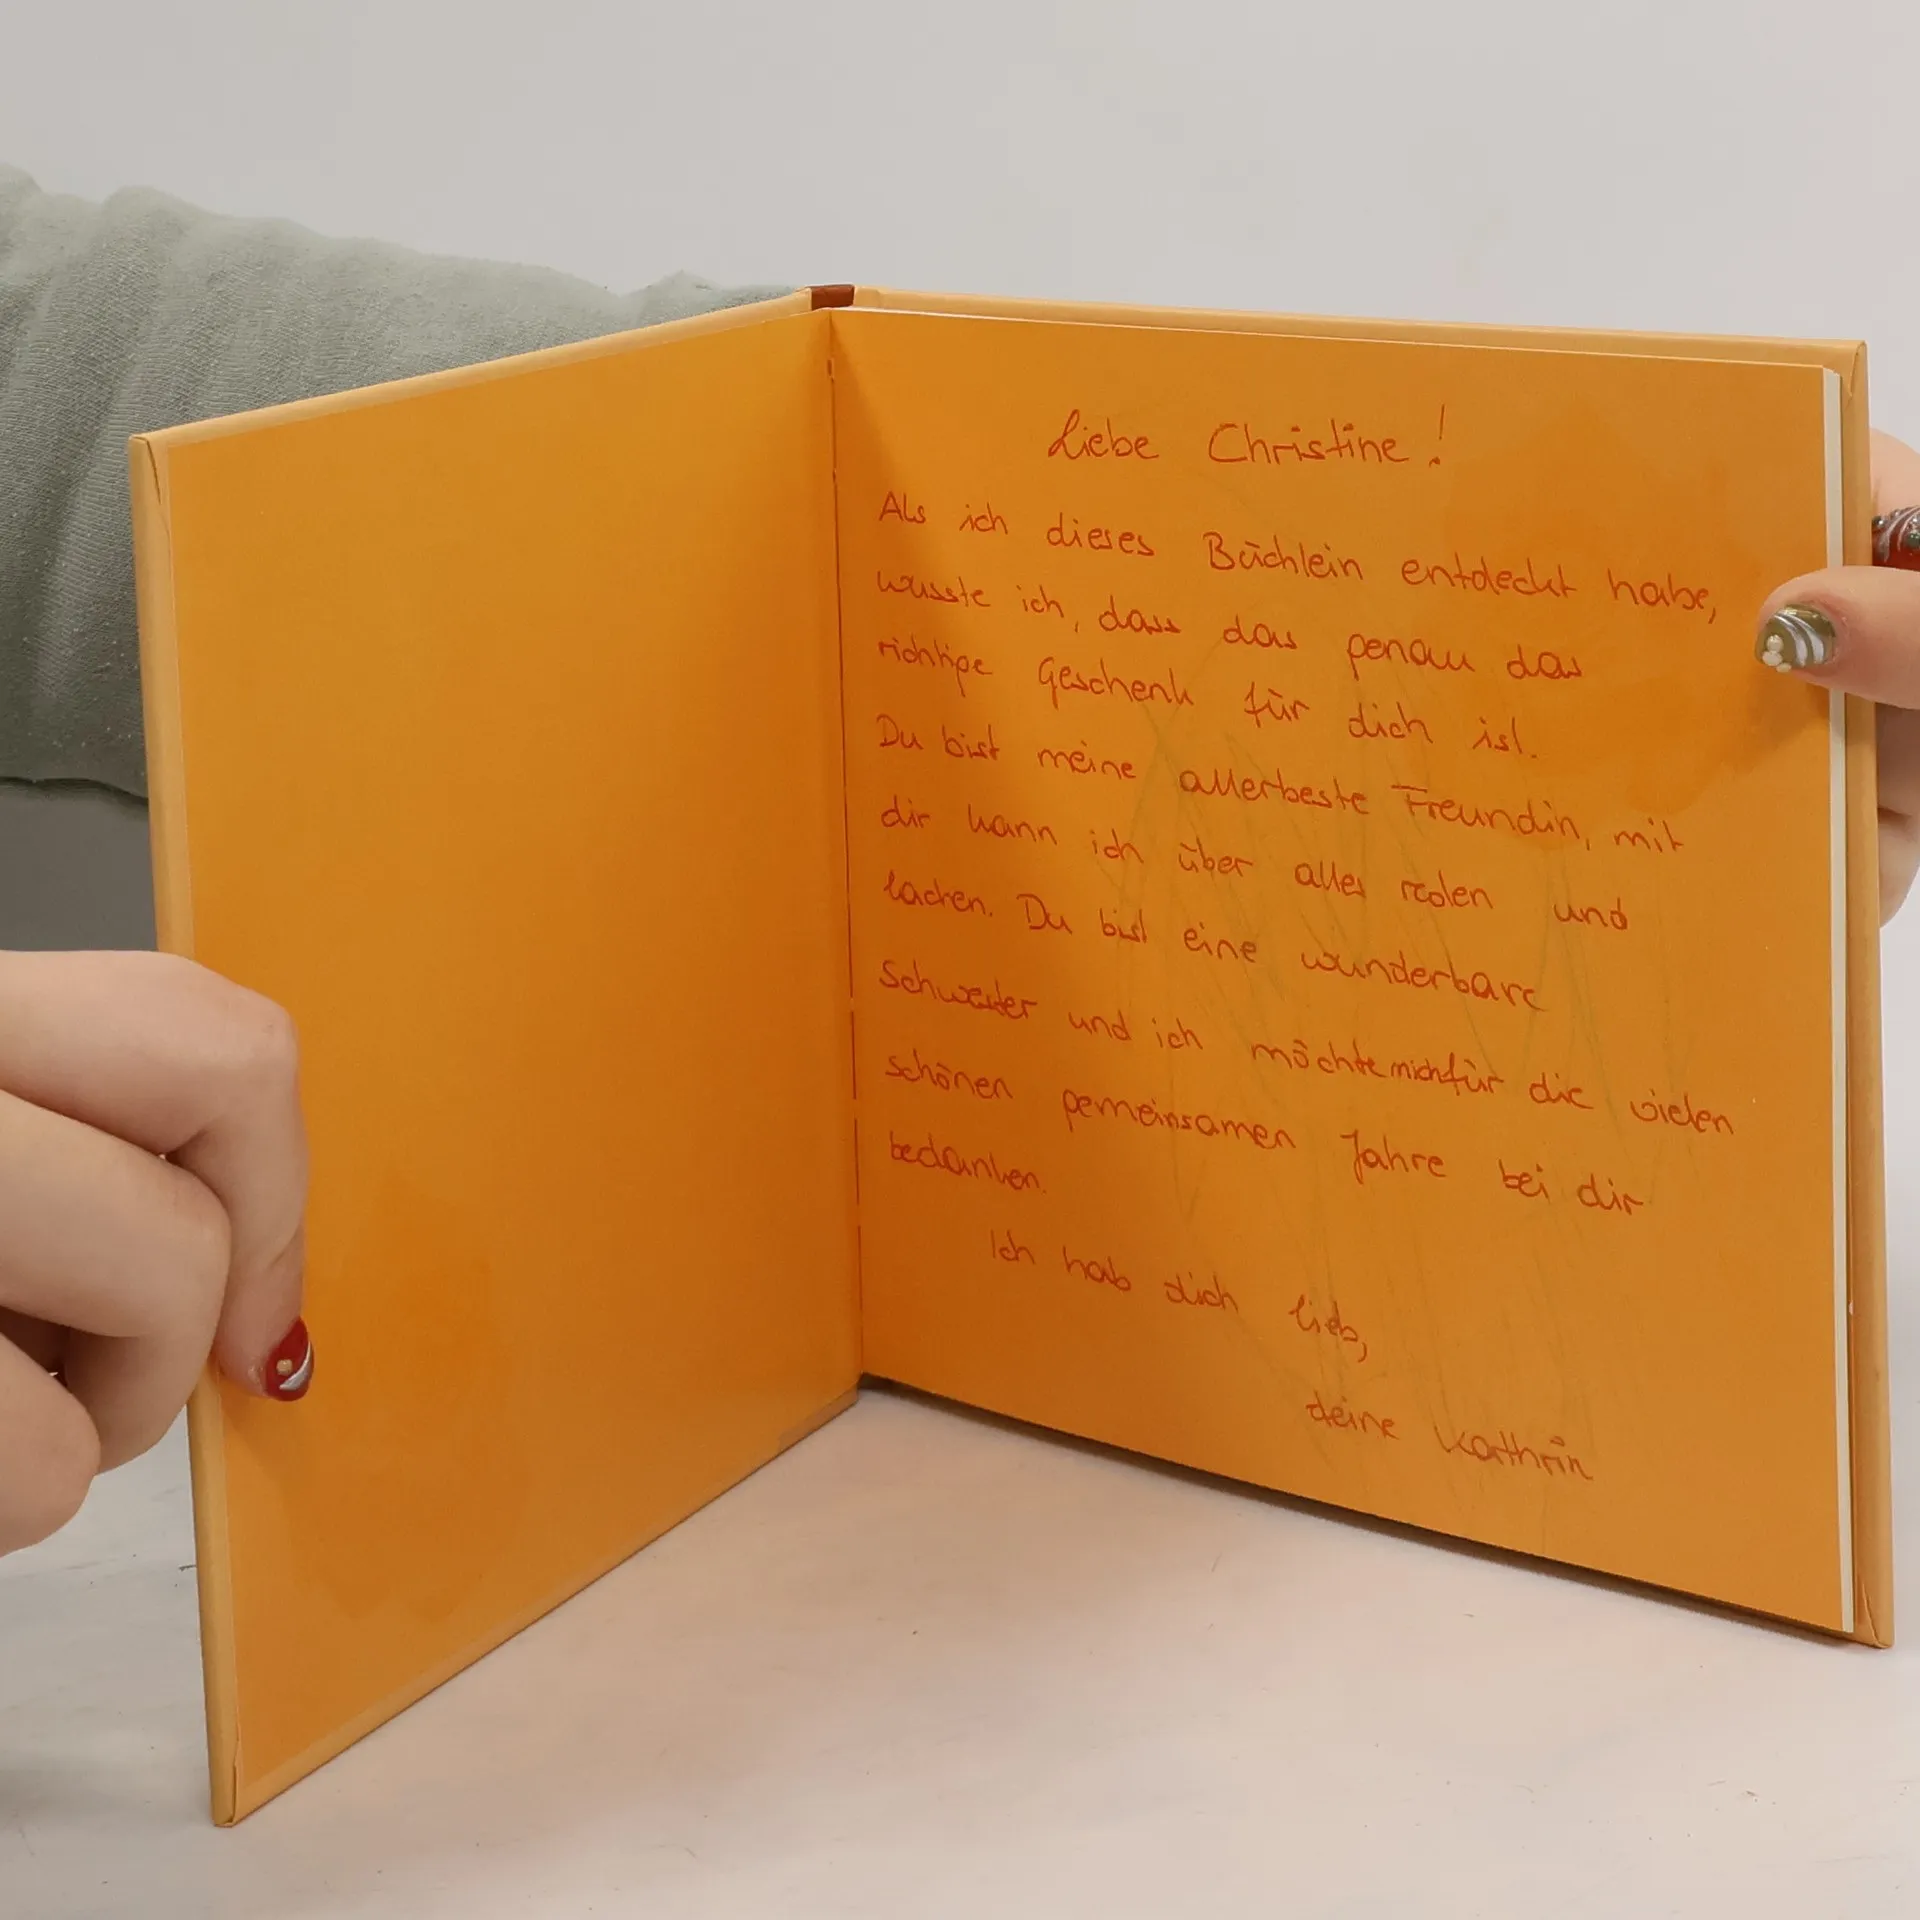 Liebe Christine!
Als ich dieses Büchlein entdeckt habe,
wusste ich, dass das genau das
richtige Geschenk für dich ist.
Du bist meine allerbeste Freundin, mit
dir kann ich über alles reden und
lachen. Du bist eine wunderbare
Schwester und ich möchte mich für die vielen
schönen gemeinsamen Jahre bei dir
bedanken.
Ich hab dich lieb,
deine Kathrin